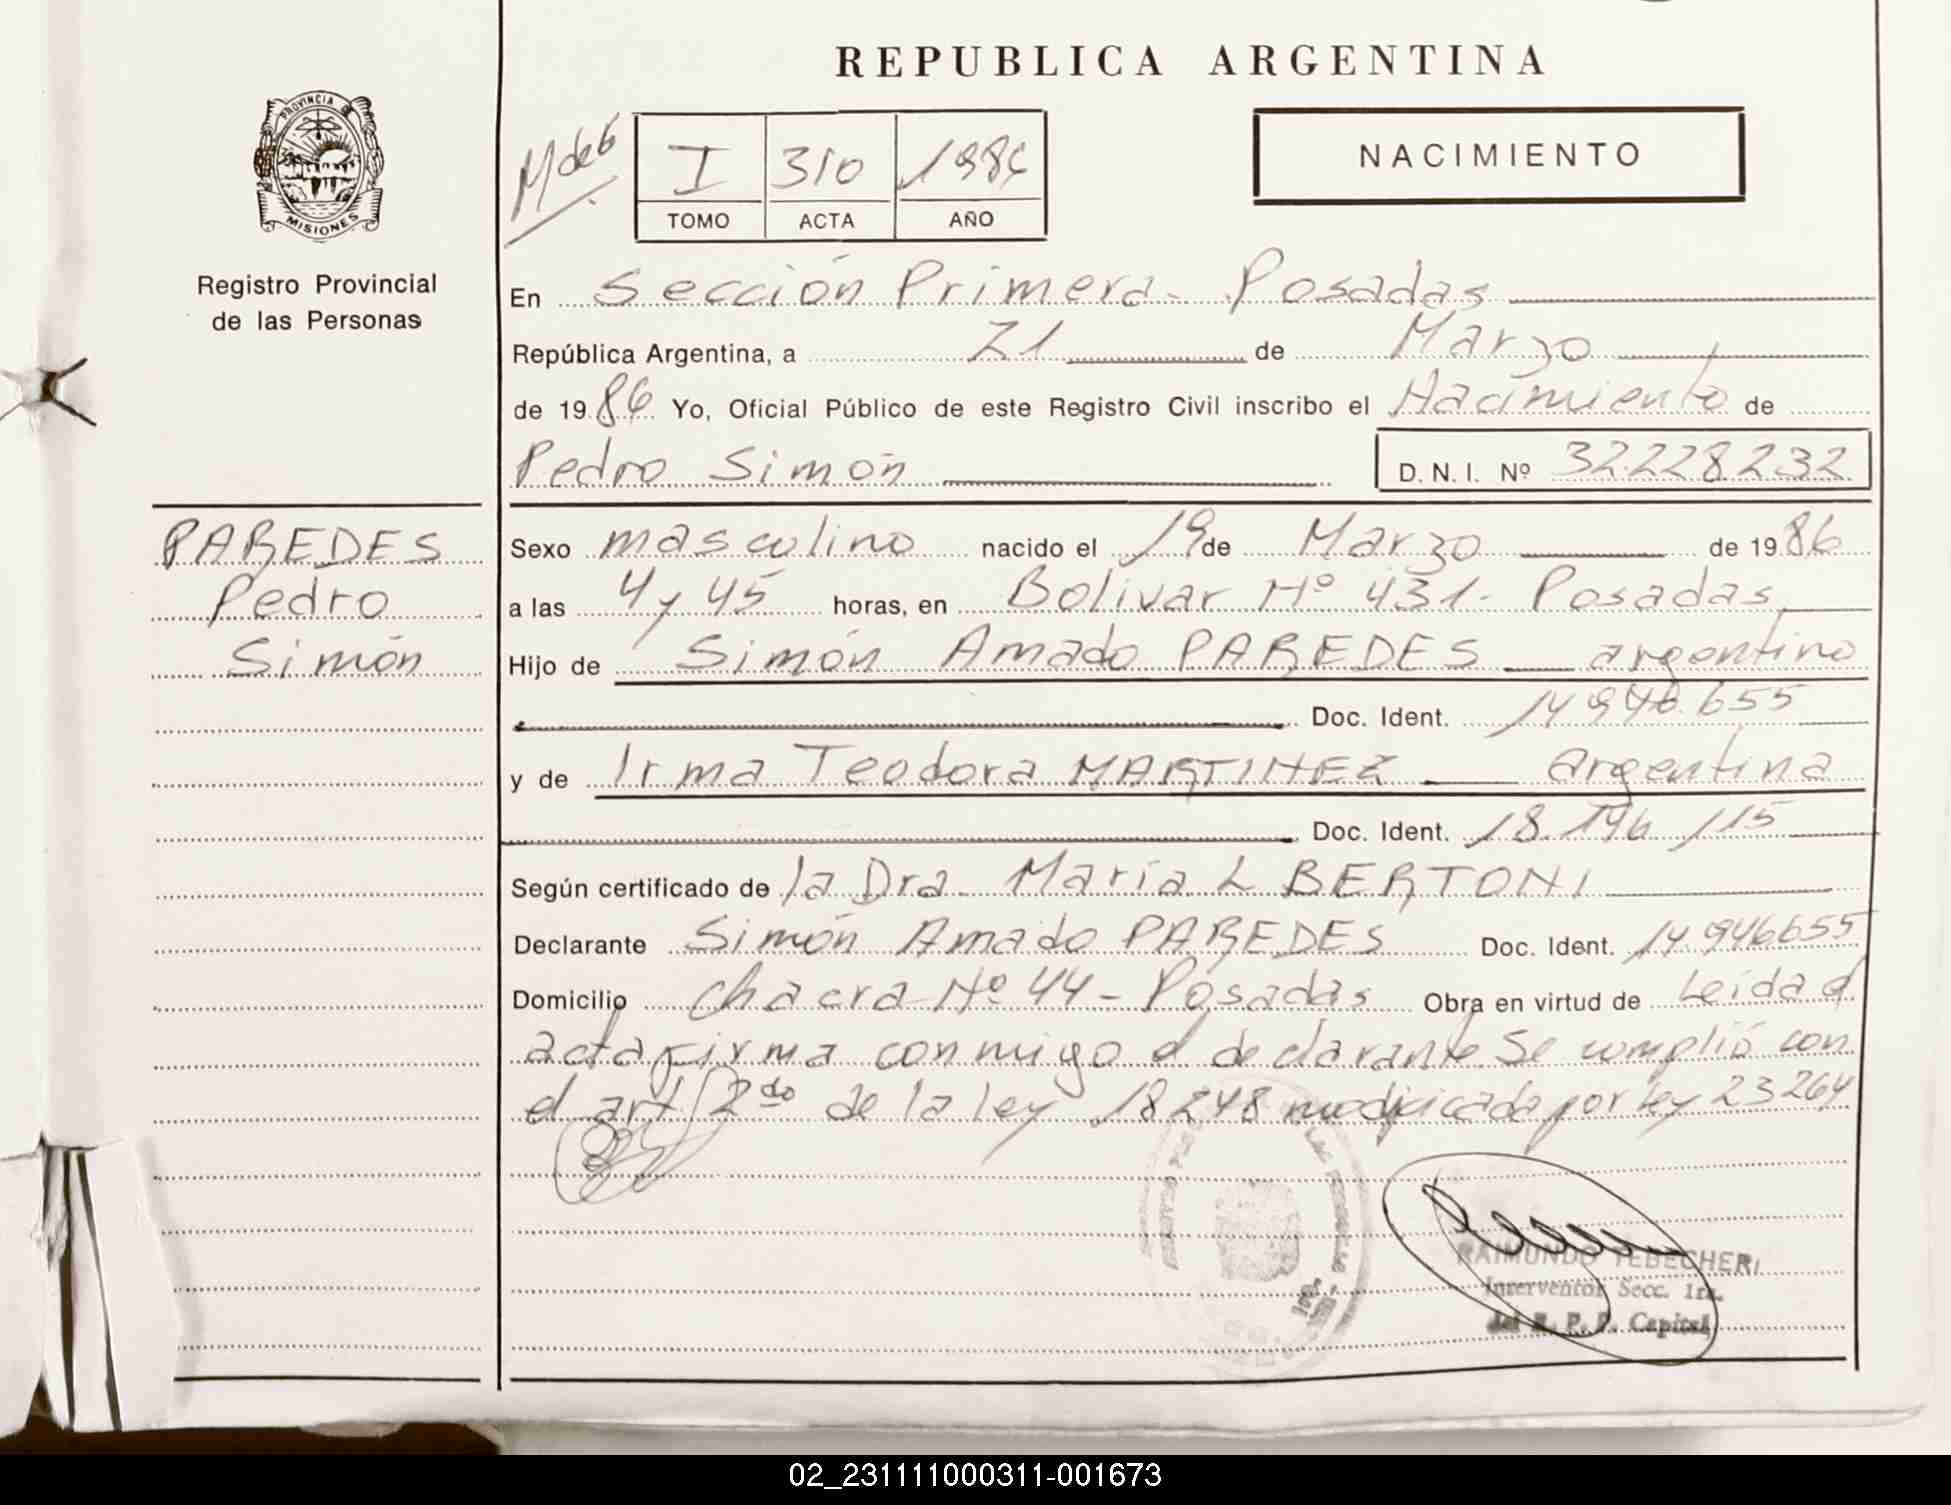 REPUBLICA ARGENTINA
PROVINCIA DE
MISIONES
Registro Provincial
de las Personas
I 310 1986
TOMO ACTA AÑO
NACIMIENTO
En Sección Primera - Posadas
República Argentina, a 21 de Marzo
de 1986 Yo, Oficial Público de este Registro Civil inscribo el Nacimiento de
Pedro Simón D. N. I. Nº 32.228.232
PAREDES
Pedro
Simón
Sexo masculino nacido el 19 de Marzo de 1986
a las 4 y 45 horas, en Bolivar Nº 431 - Posadas
Hijo de Simón Amado PAREDES argentino
Doc. Ident. 14.946.655
y de Irma Teodora MARTINEZ argentina
Doc. Ident. 18.196.115
Según certificado de la Dra. María L BERTONI
Declarante Simón Amado PAREDES Doc. Ident. 14.946655
Domicilio Chacra Nº 44 - Posadas Obra en virtud de Leída el
acta firma conmigo el declarante Se cumplió con
el art 2do de la ley 18248 modificada por ley 23264
RAIMUNDO TEBECHERI
Interventor Secc. 1ra.
del R. P. P. Capital
02_231111000311-001673